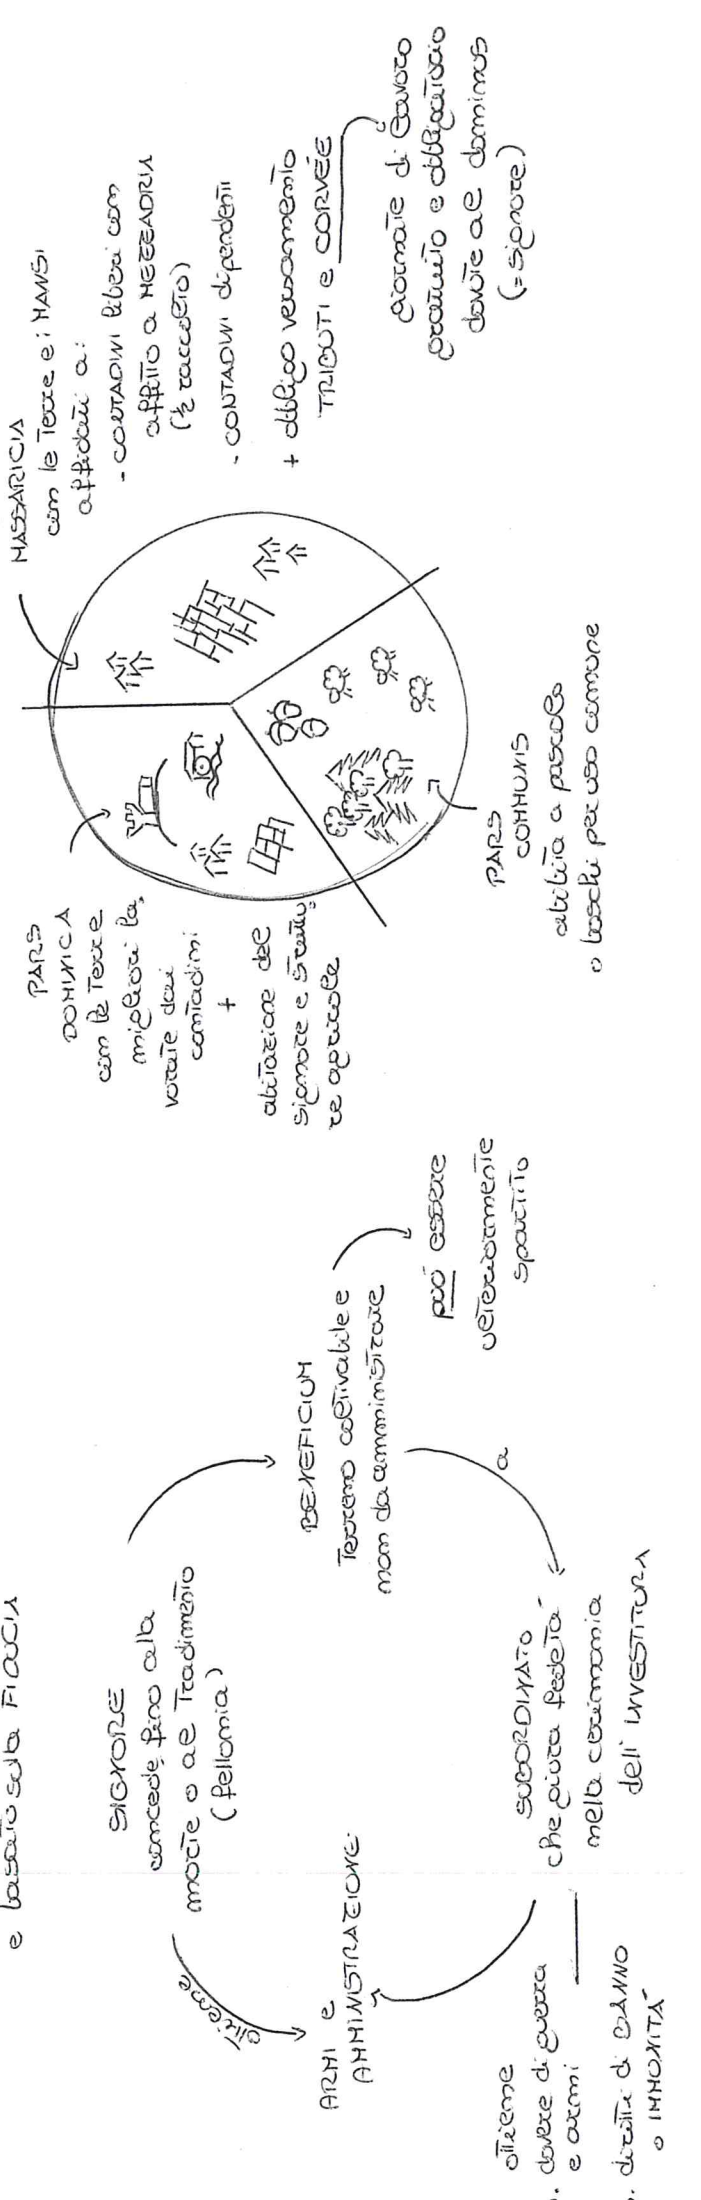 e basato sulla FIDUCIA
SIGNORE
concede fino alla
morte o al tradimento
(fellonia)
BENEFICIUM
terreno coltivabile e
non da amministrare
può essere
ulteriormente
spartito
a
SUBORDINATO
che giura fedeltà
nella cerimonia
dell' INVESTITURA
ottiene
ARMI e
AMMINISTRAZIONE
ottiene
. dovere di guerra
e armi
. diritti di BANNO
o IMMUNITÀ
PARS
DOMINICA
con le terre
migliori la,
vorate dai
contadini
+
abitazione del
signore e struttu,
re agricole
MASSARICIA
con le terre e i MANSI
affidati a:
- CONTADINI liberi con
affitto a MEZZADRIA
(½ raccolto)
- CONTADINI dipendenti
+ obbligo versamento
TRIBUTI e CORVÉE
giornate di lavoro
gratuito e obbligatorio
dovute al dominus
(=signore)
PARS
COMMUNIS
adibita a pascolo
o boschi per uso comune